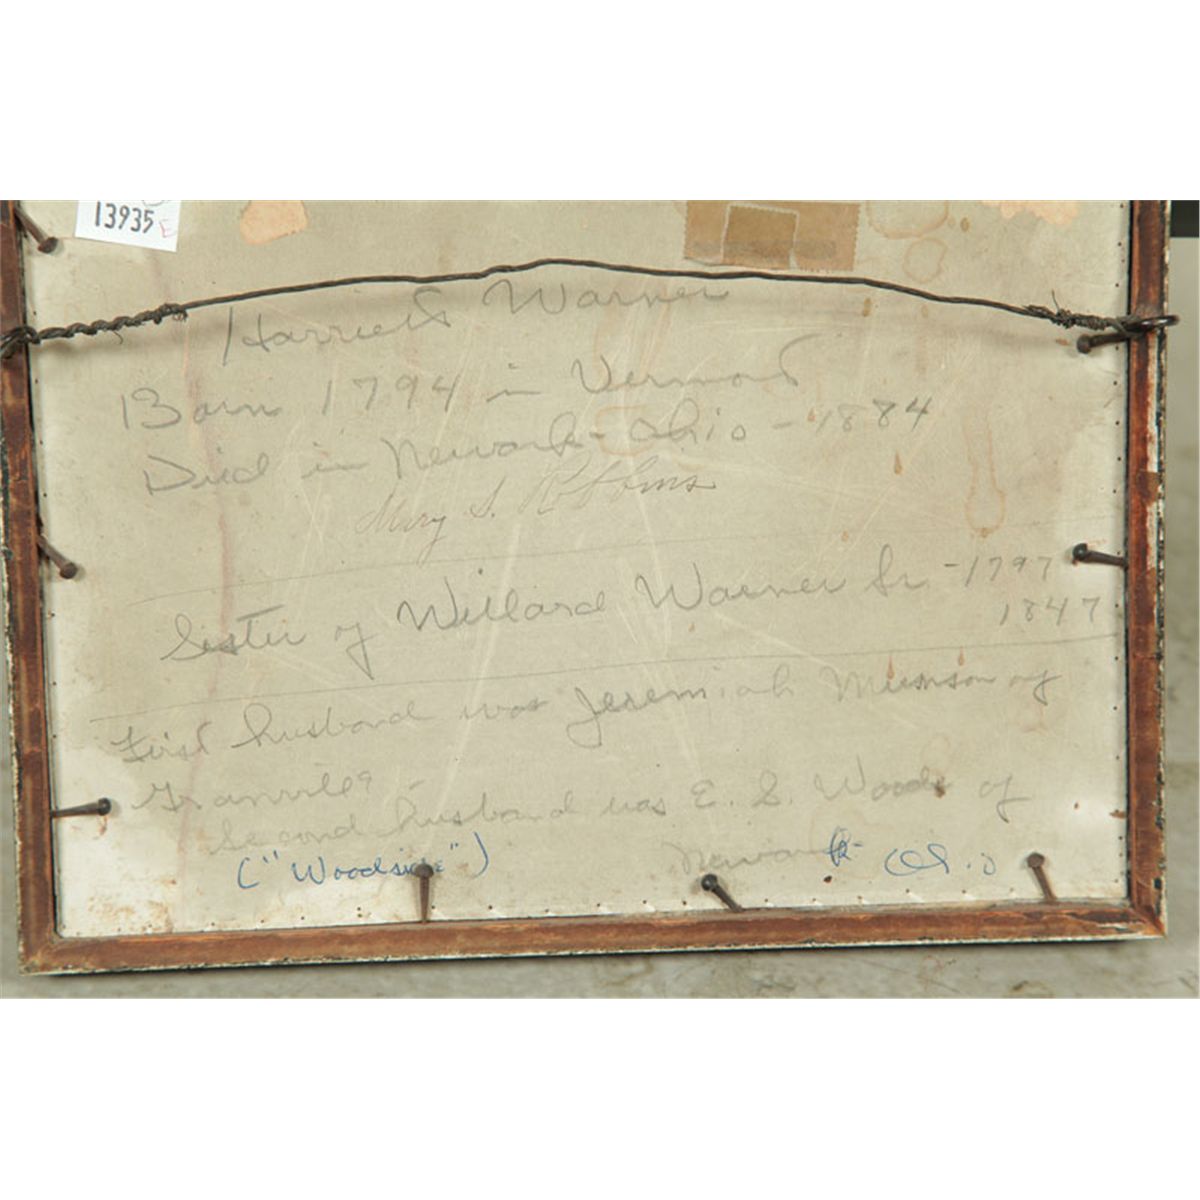 13935 E
Harriett Warner
Born 1794 in Vermont
Died in Newark - Ohio - 1884
Mary S. Robbins
Sister of Willard Warner Sr - 1797
1847
First husband was Jeremiah Munson of
Granville -
Second husband was E. S. Woods of
("Woodside") Newark Ohio